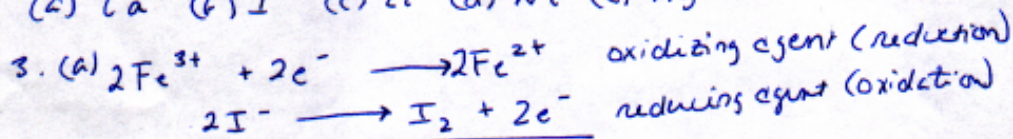 3. (a) 2Fe³⁺ + 2e⁻ ⟶ 2Fe²⁺ oxidizing agent (reduction)
2I⁻ ⟶ I₂ + 2e⁻ reducing agent (oxidation)